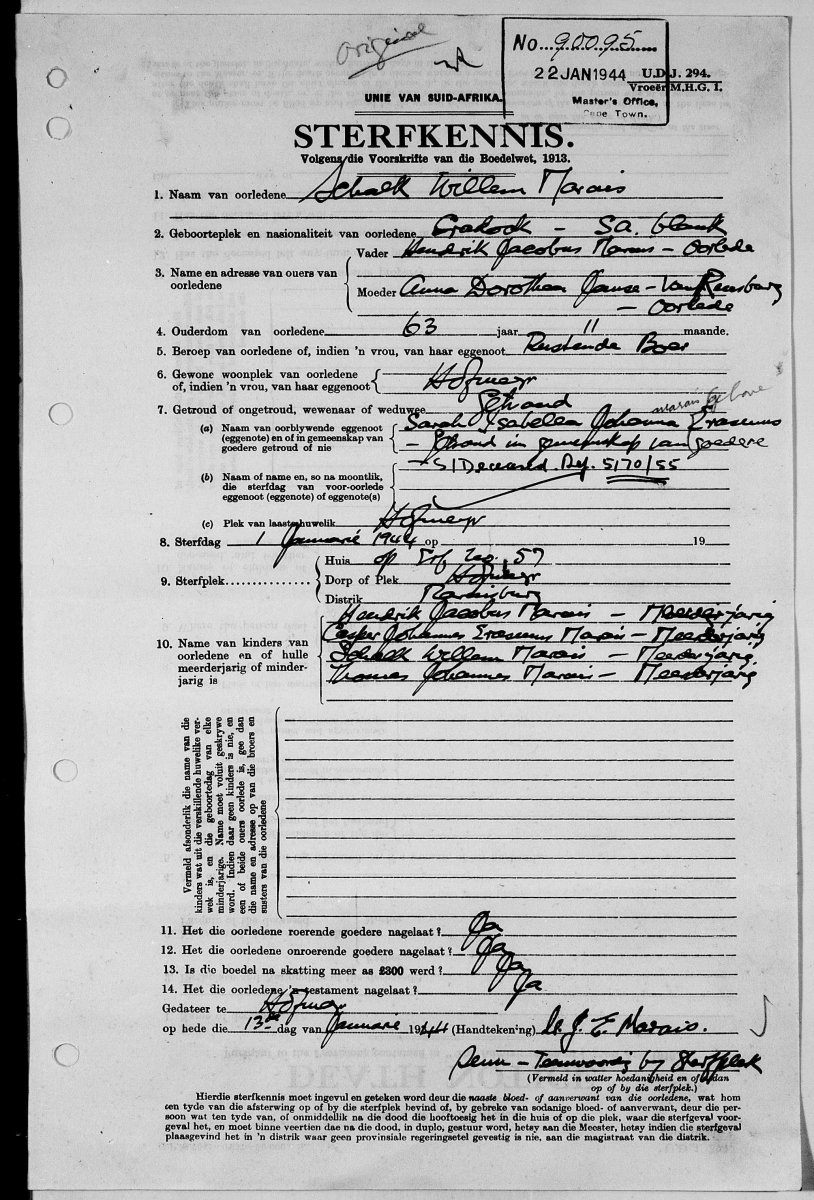 Original
No. 90095
22 JAN 1944 U.D.J. 294.
Vroeër M.H.G. I.
Master's Office,
Cape Town.
UNIE VAN SUID-AFRIKA.
STERFKENNIS.
Volgens die Voorskrifte van die Boedelwet, 1913.
1. Naam van oorledene Schalk Willem Marais
2. Geboorteplek en nasionaliteit van oorledene Cradock - SA. blank
3. Name en adresse van ouers van oorledene
Vader Hendrik Jacobus Marais - Oorlede
Moeder Anna Dorothea Janse-Van Rensburg
- Oorlede
4. Ouderdom van oorledene 63 jaar 11 maande.
5. Beroep van oorledene of, indien 'n vrou, van haar eggenoot Rustende Boer
6. Gewone woonplek van oorledene
of, indien 'n vrou, van haar eggenoot Hofmeyr
7. Getroud of ongetroud, wewenaar of weduwee Getroud
(a) Naam van oorblywende eggenoot
(eggenote) en of in gemeenskap van
goedere getroud of nie
Sarah Isabella Johanna Erasmus
marais
- Getroud in gemeenskap van goedere
(b) Naam of name en, so na moontlik,
die sterfdag van voor-oorlede
eggenoot (eggenote) of eggenote(s)
S/Deceased. Ref. 5170/55
(c) Plek van laaste huwelik Hofmeyr
8. Sterfdag 1 Januarie 1944 op 19
9. Sterfplek
Huis op Erf No. 57
Dorp of Plek Hofmeyr
Distrik Maraisburg
10. Name van kinders van
oorledene en of hulle
meerderjarig of minder-
jarig is
Hendrik Jacobus Marais - Meerderjarig
Casper Johannes Erasmus Marais - Meerderjarig
Schalk Willem Marais - Meerderjarig
Thomas Johannes Marais - Meerderjarig
Vermeld afsonderlik die name van die
kinders wat uit die verskillende huwelike ver-
wek is, en die geboortedag van elke
minderjarige. Name moet voluit geskrywe
word. Indien daar geen kinders is nie, en
een of beide ouers oorlede is, gee dan
die name en adresse op van die broers en
susters van die oorledene
11. Het die oorledene roerende goedere nagelaat? Ja
12. Het die oorledene onroerende goedere nagelaat? Ja
13. Is die boedel na skatting meer as £300 werd? Ja
14. Het die oorledene 'n testament nagelaat? Ja
Gedateer te Hofmeyr
op hede die 13de dag van Januarie 1944 (Handtekening) J. E. Marais.
Seun - Teenwoordig by Sterfplek
(Vermeld in watter hoedanigheid en of dan
op of by die sterfplek.)
Hierdie sterfkennis moet ingevul en geteken word deur die naaste bloed- of aanverwant van die oorledene, wat hom
ten tyde van die afsterwing op of by die sterfplek bevind of, by gebreke van sodanige bloed- of aanverwant, deur die per-
soon wat ten tyde van, of onmiddellik na die dood die hooftoesig het in die huis of op die plek, waar die sterfgeval voor-
geval het, en moet binne veertien dae na die dood, in duplo, gestuur word, hetsy aan die Meester, hetsy indien die sterfgeval
plaasgevind het in 'n distrik waar geen provinsiale regeringsetel gevestig is nie, aan die magistraat van die distrik.